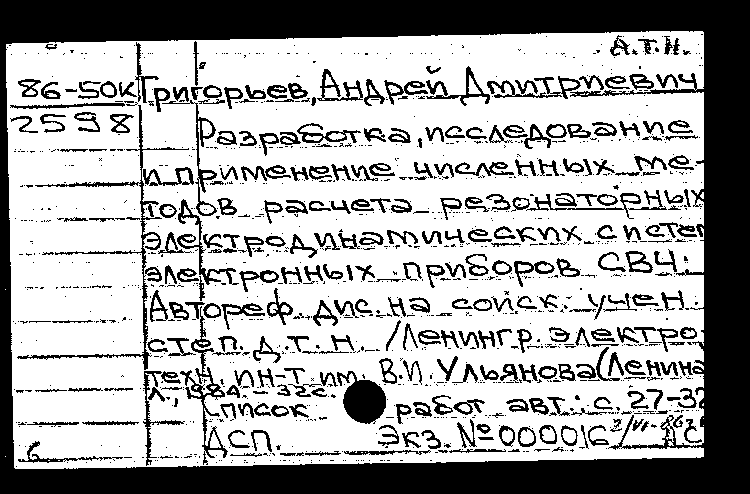 А.Т.Н.
86-50к Григорьев, Андрей Дмитриевич
2598
Разработка, исследование
и применение численных ме-
тодов расчета резонаторных
электродинамических систем
электронных приборов СВЧ:
Автореф. дис. на соиск. учен.
степ. д.т.н. /Ленингр. электро-
техн. ин-т им. В.И. Ульянова (Ленина
Л., 1984. - 32с.
Список работ авт.: с. 27-32
ДСП. Экз. №000016
6